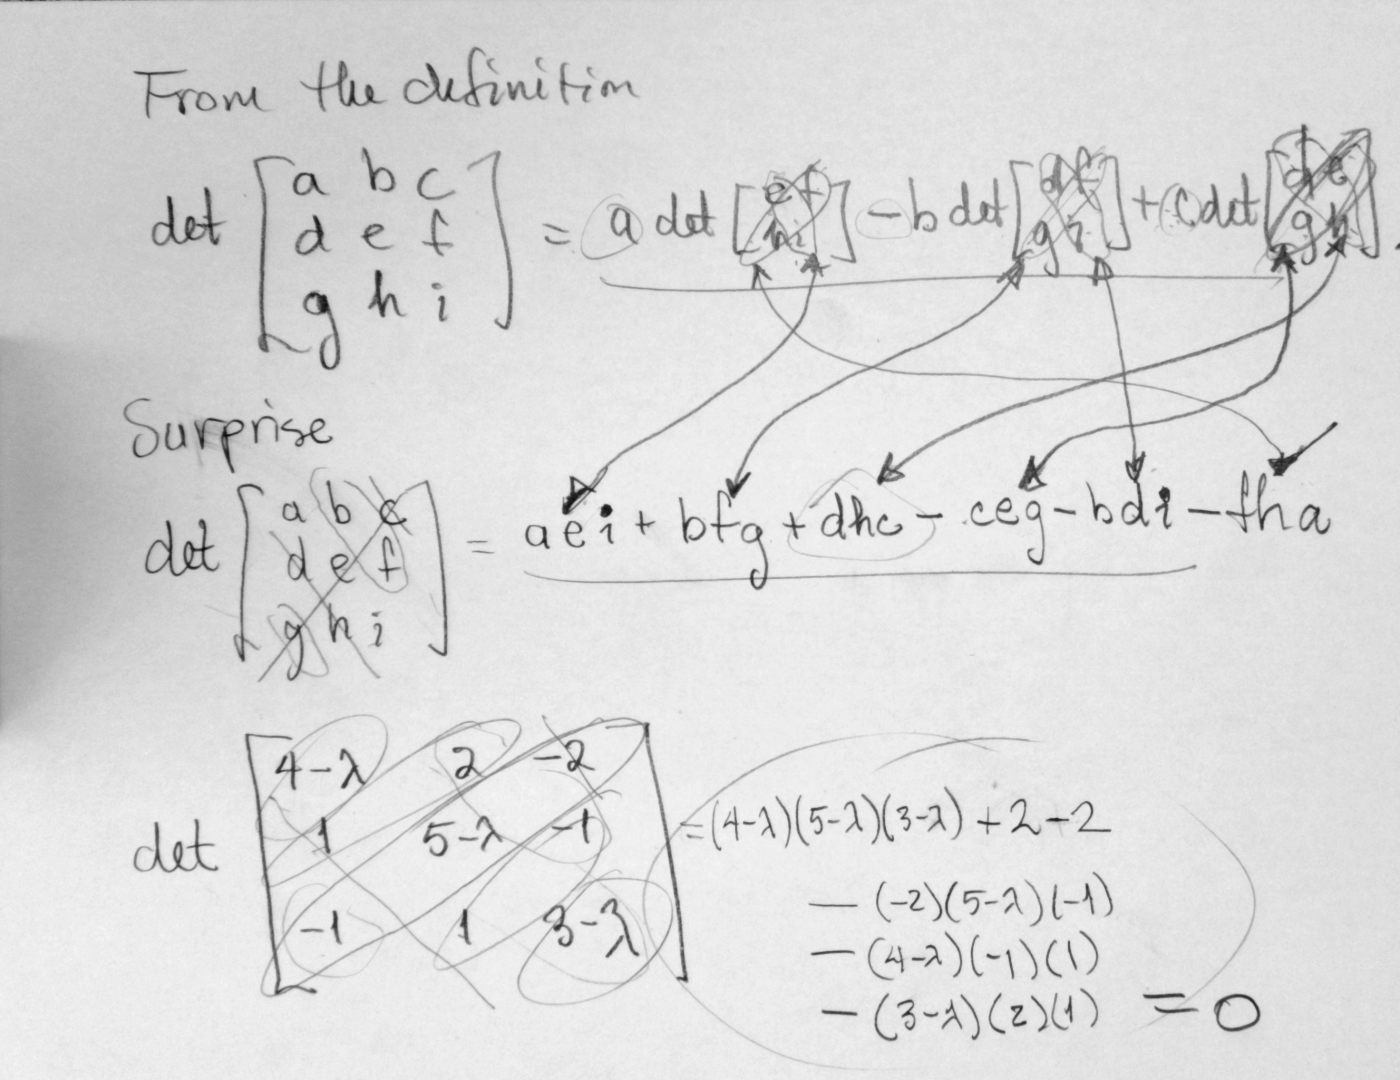 From the definition
det [a b c
d e f
g h i] = a det [e f
h i] - b det [d f
g i] + c det [d e
g h].
Surprise
det [a b c
d e f
g h i] = aei + bfg + dhc - ceg - bdi - fha
det [4-λ 2 -2
1 5-λ -1
-1 1 3-λ] = (4-λ)(5-λ)(3-λ) + 2 - 2
- (-2)(5-λ)(-1)
- (4-λ)(-1)(1)
- (3-λ)(2)(1) = 0